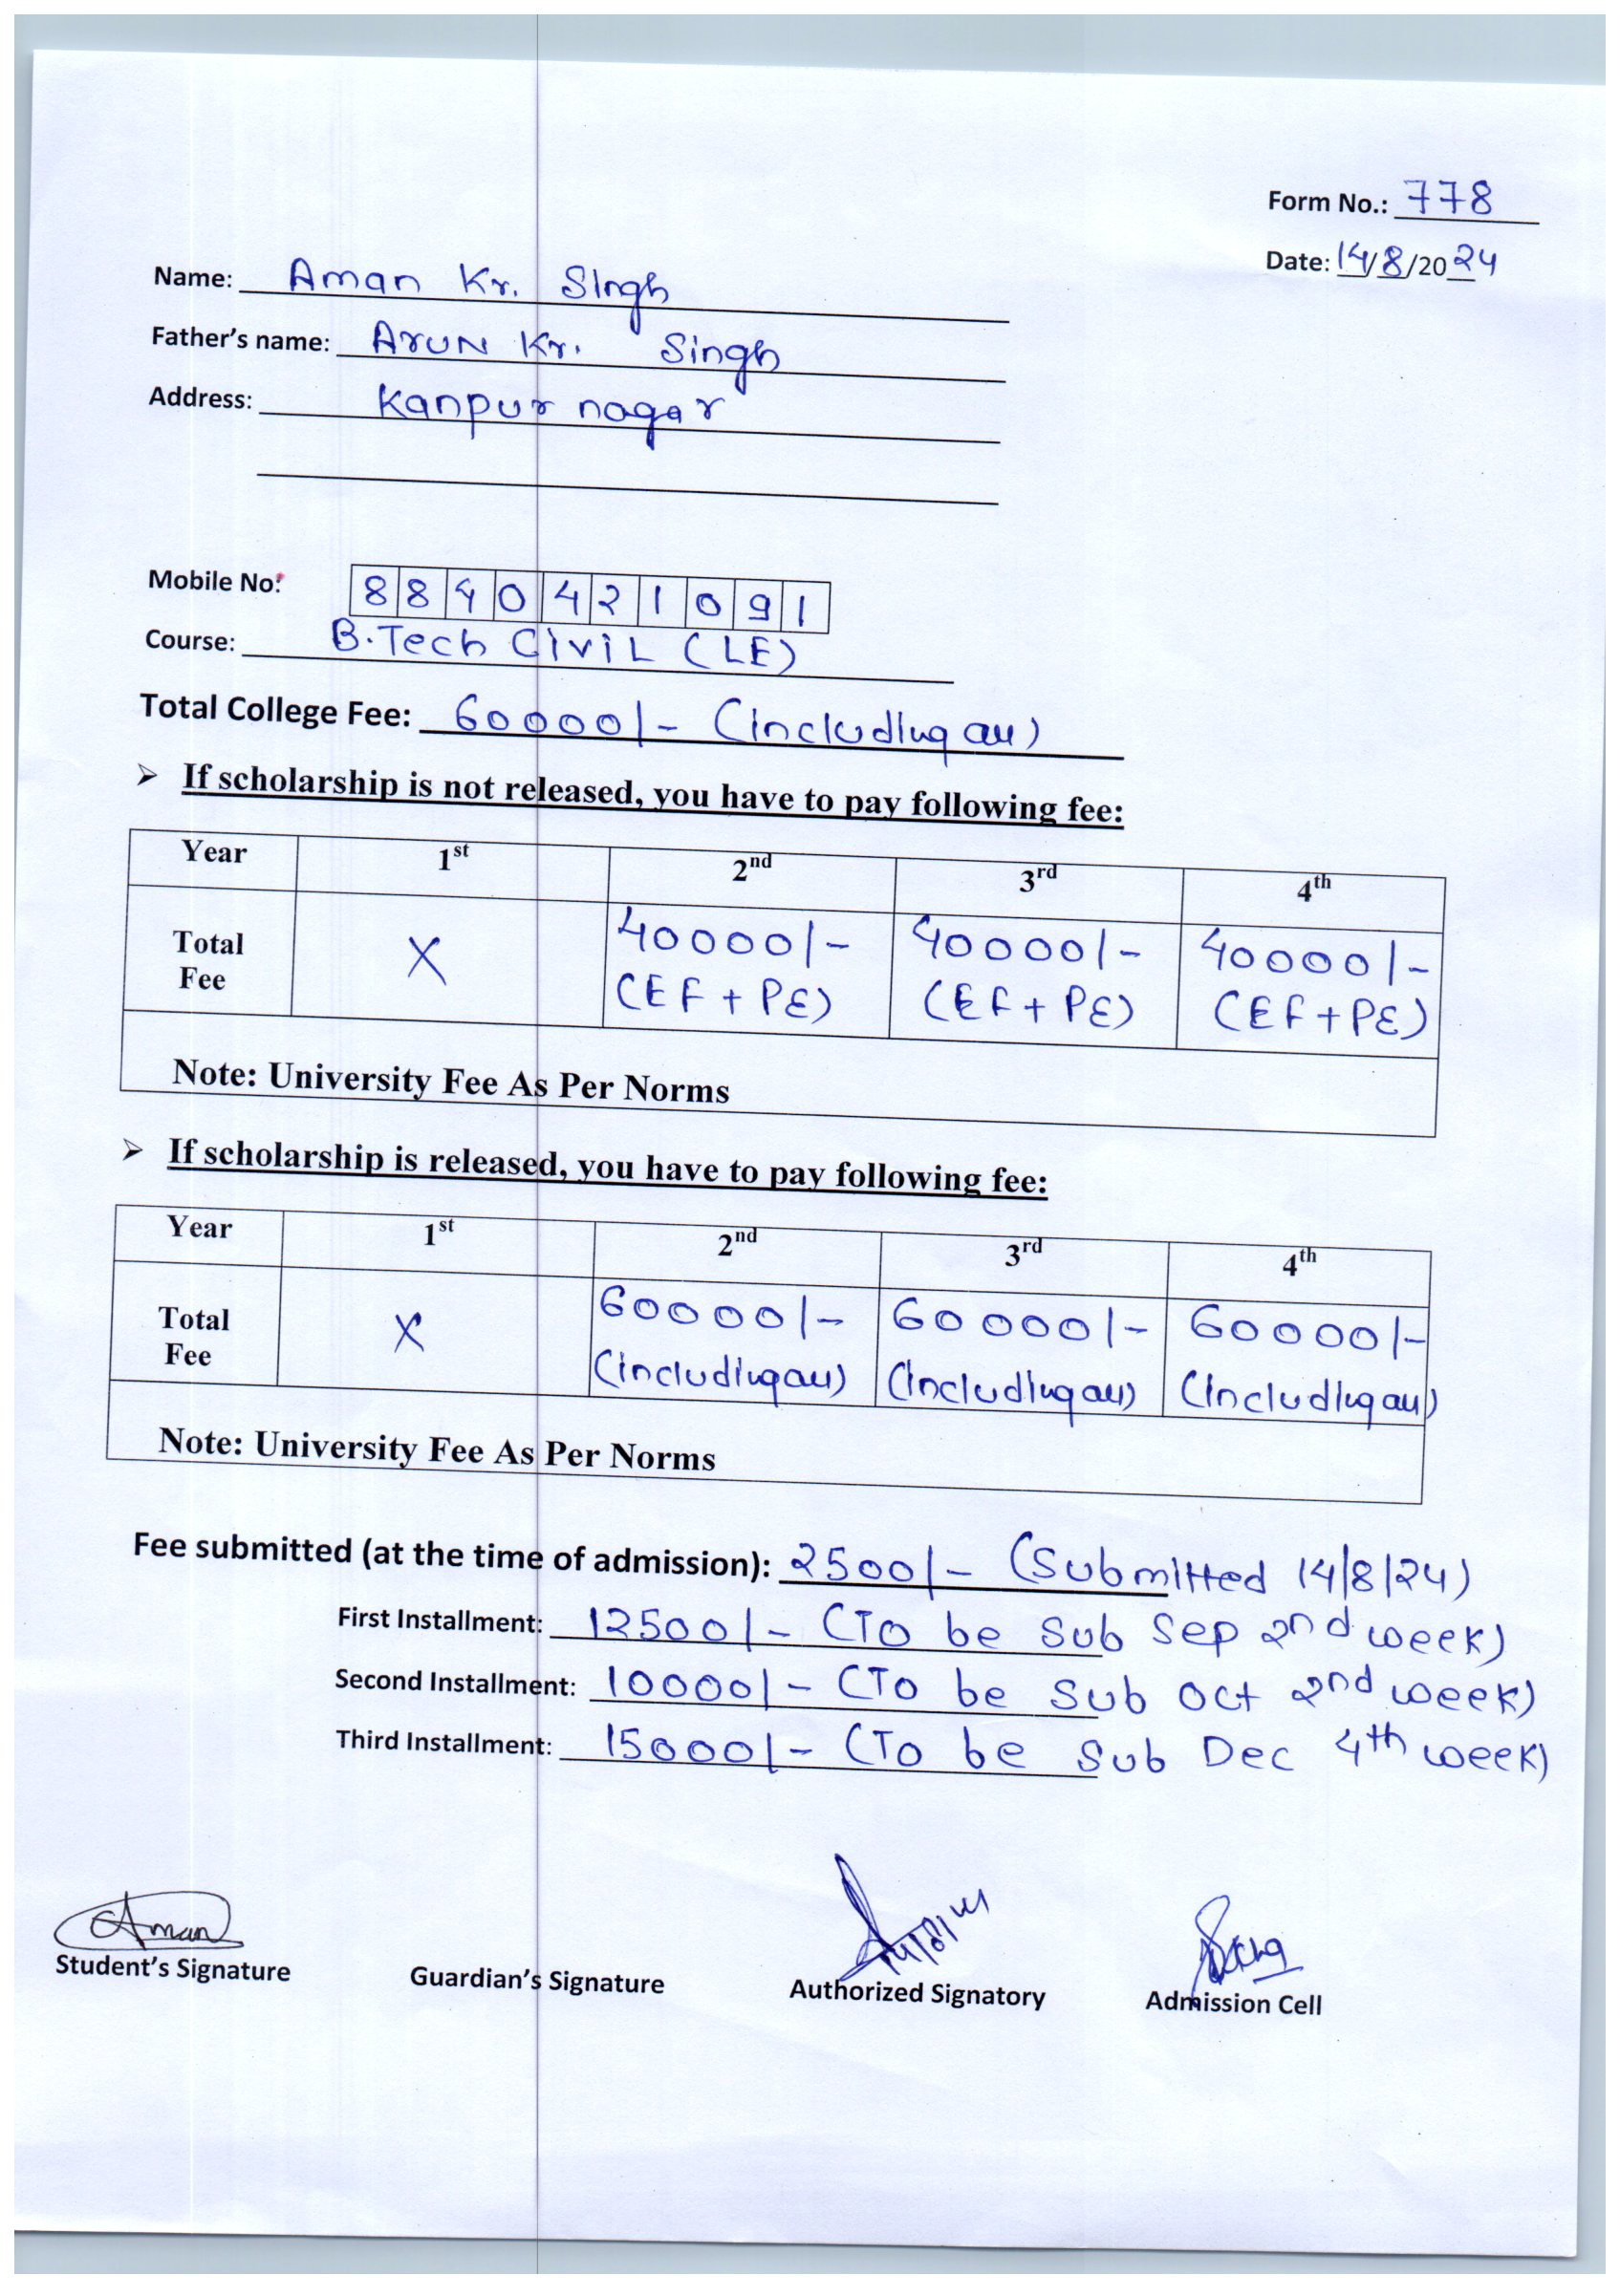 Form No.: 778
Date: 14/8/2024
Name: Aman Kr. Singh
Father's name: Arun Kr. Singh
Address: Kanpur nagar
Mobile No: 8840421091
Course: B.Tech Civil (LE)
Total College Fee: 60000/- (including all)
➢ If scholarship is not released, you have to pay following fee:
Year 1st 2nd 3rd 4th
Total Fee X 40000/- (EF + PE) 40000/- (EF + PE) 40000/- (EF + PE)
Note: University Fee As Per Norms
➢ If scholarship is released, you have to pay following fee:
Year 1st 2nd 3rd 4th
Total Fee X 60000/- (including all) 60000/- (including all) 60000/- (including all)
Note: University Fee As Per Norms
Fee submitted (at the time of admission): 2500/- (Submitted 14/8/24)
First Installment: 12500/- (To be Sub Sep 2nd week)
Second Installment: 10000/- (To be Sub Oct 2nd week)
Third Installment: 15000/- (To be Sub Dec 4th week)
Aman
Student's Signature Guardian's Signature Authorized Signatory Admission Cell